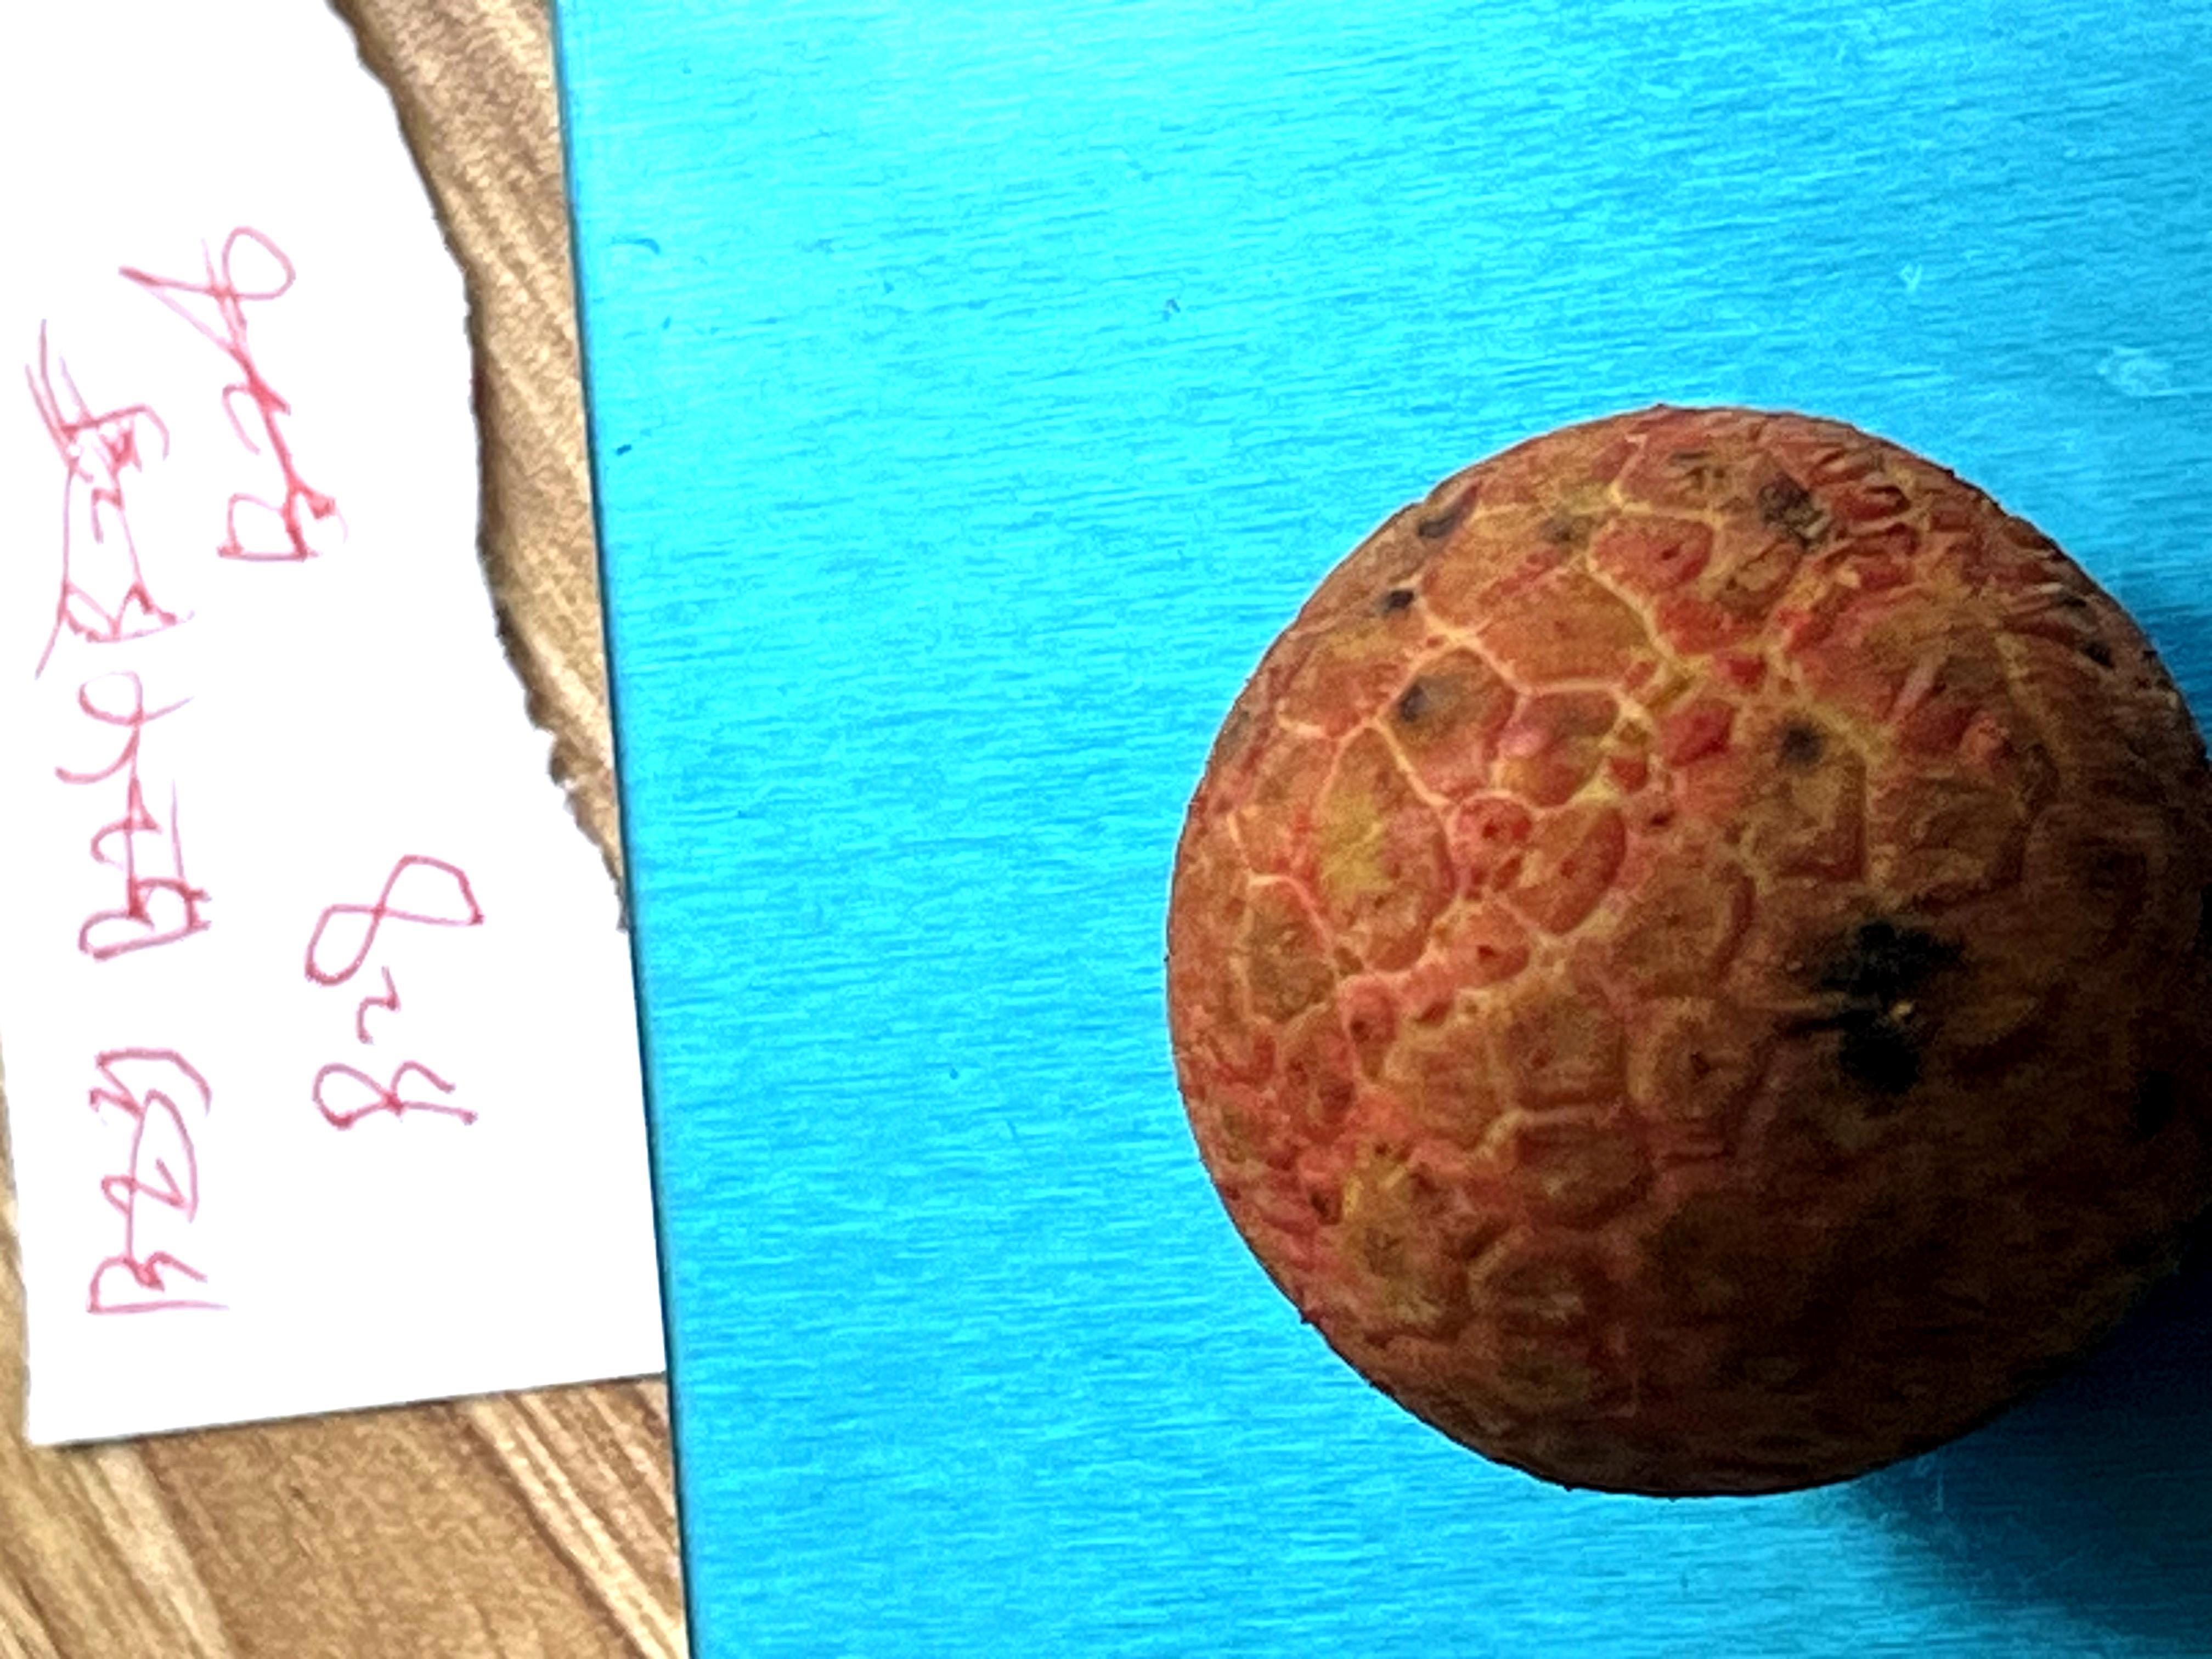 B23 B24 B25
B26
B28